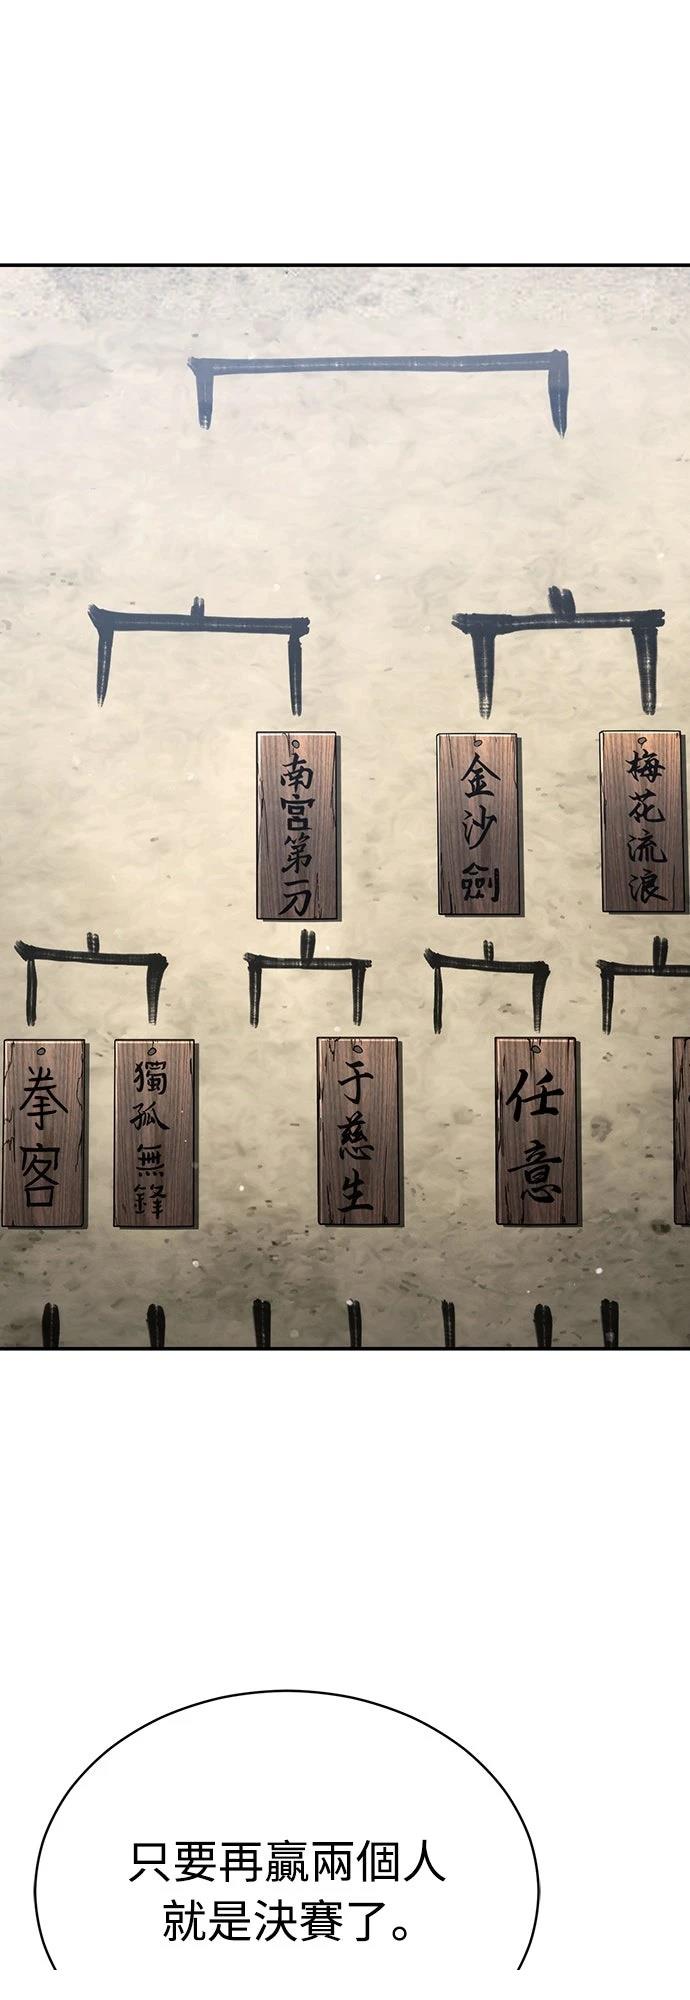 南宮第一刀
金沙劍
梅花流浪
拳客
獨孤無鋒
于慈生
任意
只要再贏兩個人
就是決賽了。